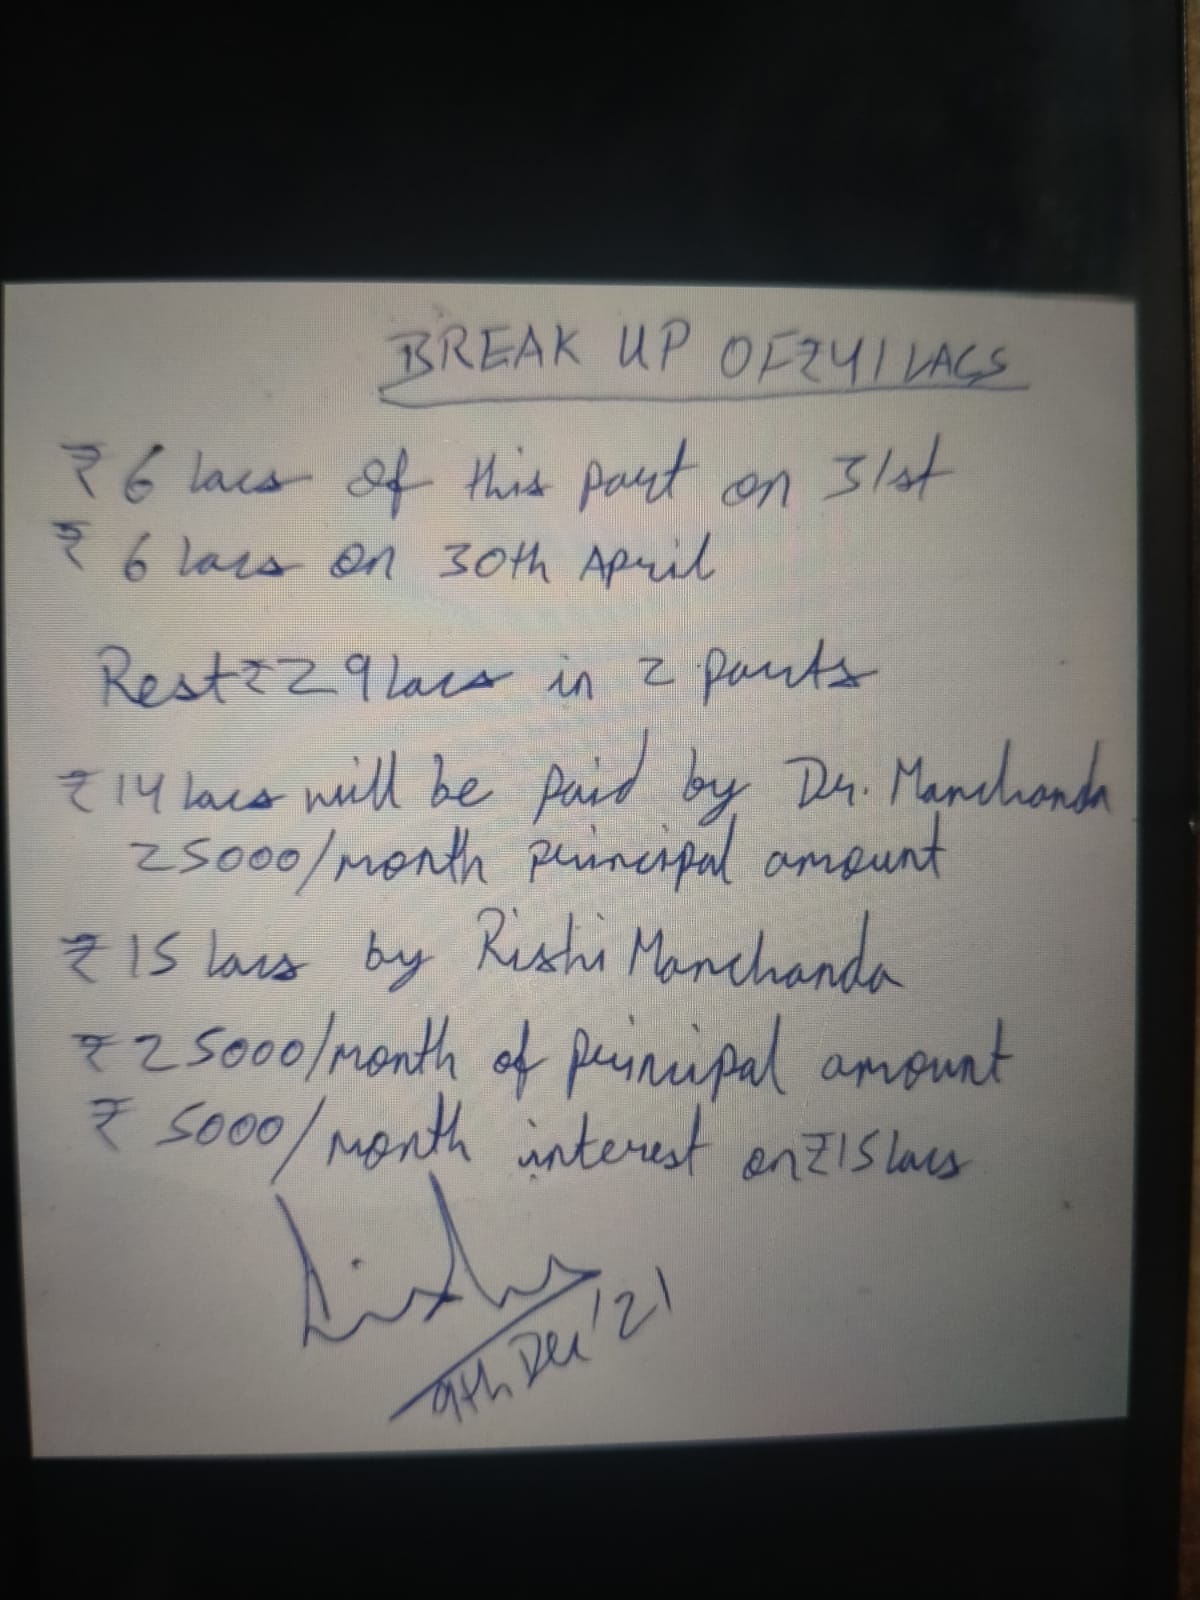 BREAK UP OF ₹41 LACS
₹ 6 lacs of this part on 31st
₹ 6 lacs on 30th April
Rest ₹29 lacs in 2 parts
₹14 lacs will be paid by Dr. Manchanda
25000/month principal amount
₹ 15 lacs by Rishi Manchanda
₹ 25000/month of principal amount
₹ 5000/month interest on ₹15 lacs
9th Dec '21